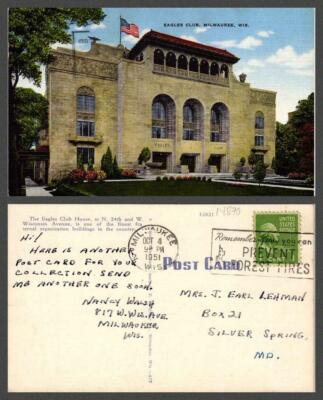 EAGLES CLUB, MILWAUKEE, WIS.
EAGLES CLUB
The Eagles Club House, at N. 24th and W.
Wisconsin Avenue, is one of the finest fra-
ternal organization buildings in the country.
Hi!
HERE IS ANOTHER
POST CARD FOR YOUR
COLLECTION. SEND
ME ANOTHER ONE SOON.
NANCY WALSH
817 W. WIS. AVE
MILWAUKEE
WIS.
MILWAUKEE
OCT 4
PM
1951
WIS.
UNITED STATES
POSTAGE
Remember
PREVENT
FOREST FIRES
POST CARD
MRS. J. EARL LEHMAN
BOX 21
SILVER SPRING,
MD.